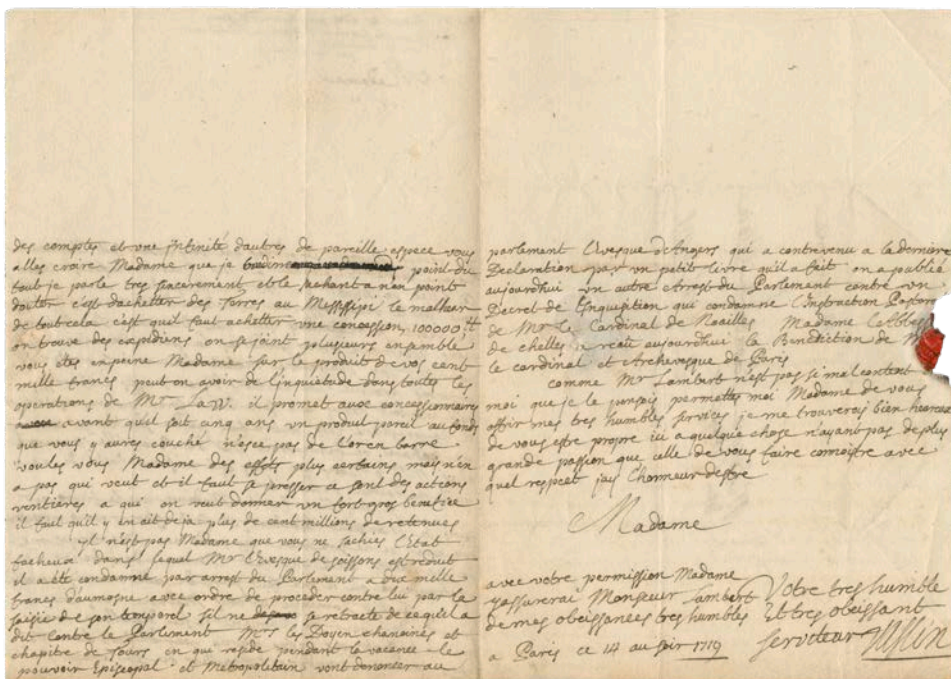 des comptes et une infinité d'autres de pareille espece vous
alles croire Madame que je badine point du
tout je parle tres sincerement et le sachant a n'en point
douter c'est d'achetter des terres au Mississipi le malheur
de tout cela c'est qu'il faut achetter une concession 100000 ₶
on trouve des expediens on se joint plusieurs ensemble
vous etes en peine Madame sur le produit de vos cent
mille francs peut on avoir de l'inquietude dans toutes les
operations de Mr Law. il promet aux concessionnaires
avant qu'il soit cinq ans un produit pareil au fonds
que vous y aures couché n'esce pas de l'or en barre
voules vous Madame des effets plus certains mais n'en
a pas qui veut et il faut se presser ce sont des actions
rentieres a qui on veut donner un fort gros benefice
il faut qu'il y en ait deja plus de cent millions de retenues
yl n'est pas Madame que vous ne sachies l'Etat
facheux dans lequel Mr l'Evesque de soissons est reduit
il a été condamné par arrest du Parlement a dix mille
francs d'aumosne avec ordre de proceder contre lui par la
saisie de son temporel s'il ne se retracte de ce qu'il a
dit contre le Parlement Mrs les Doyen chanoines et
chapitre de Tours en qui reside pendant la vacance le
pouvoir Episcopal et Metropolitain vont denoncer au
parlement l'Evesque d'Angers qui a contrevenu a la derniere
Declaration par un petit livre qu'il a fait on a publié
aujourdhui un autre Arrest du Parlement contre un
Decret de l'inquisition qui condamne l'Instruction Pastor
de Mr Le Cardinal de Noailles Madame l'Abbes
de chelles a receu aujourdhui la Benediction de M
le cardinal et Archevesque de Paris
comme Mr Lambert n'est pas si mal content
moi que je le pensois permettes moi Madame de vous
offrir mes tres humbles services je me trouverois bien heureux
de vous estre propre ici a quelque chose n'ayant pas de plus
grande passion que celle de vous faire connoistre avec
quel respect jay l'honneur destre
Madame
avec votre permission Madame
j'assurerai Monsieur Lambert
de mes obeissances tres humbles
Votre tres humble
Et tres obeissant
serviteur
a Paris ce 14 au soir 1719